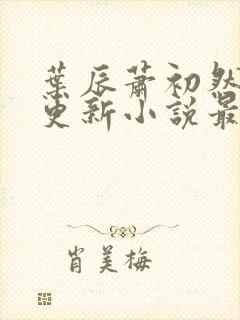 葉辰蕭初然
更新小說最
肖美梅